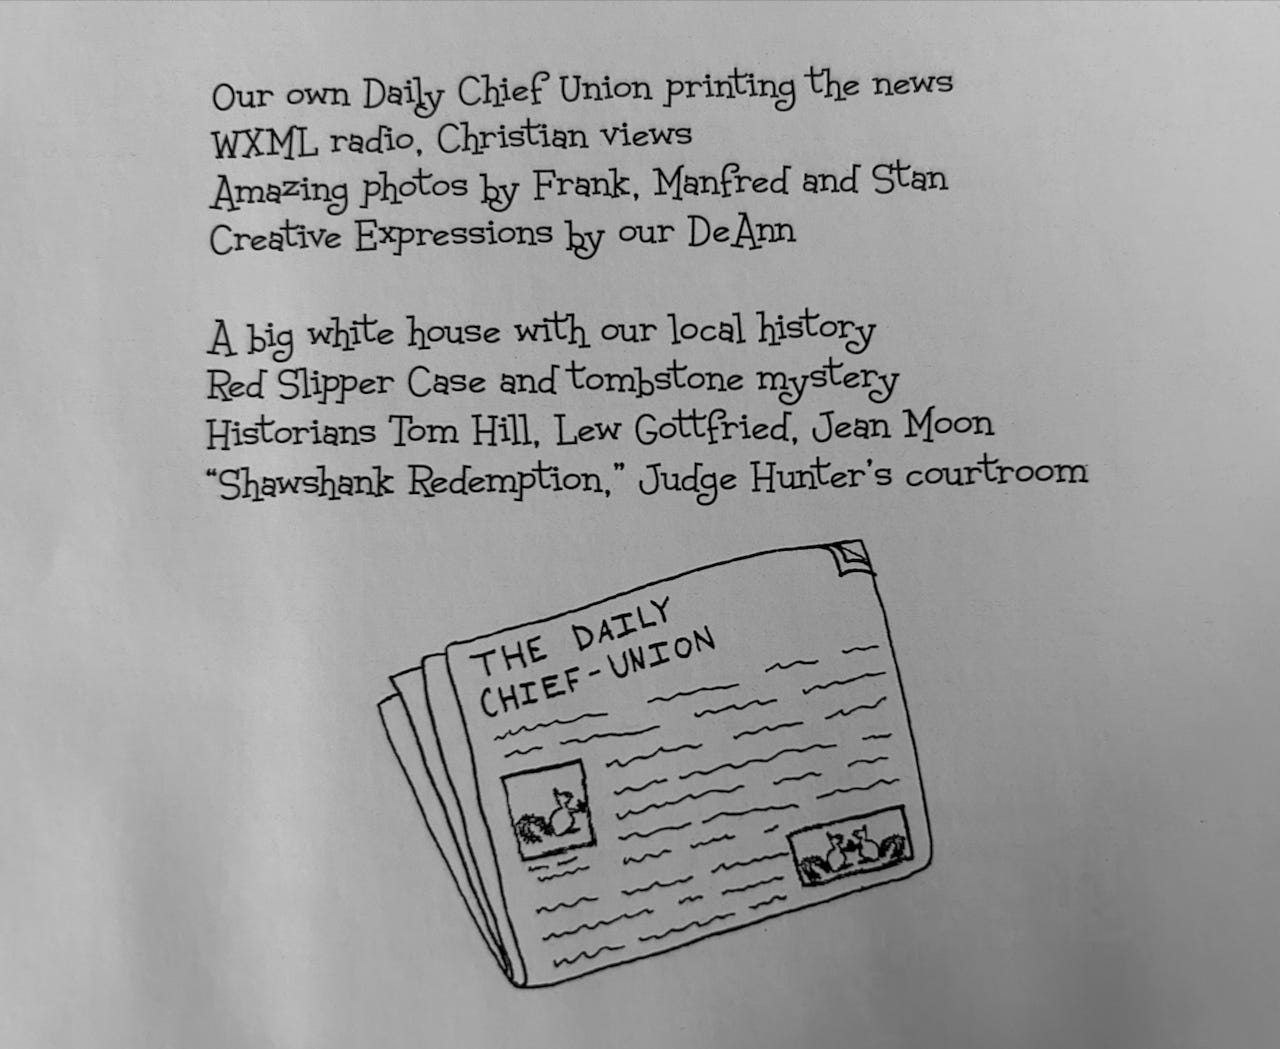 Our own Daily Chief Union printing the news
WXML radio, Christian views
Amazing photos by Frank, Manfred and Stan
Creative Expressions by our DeAnn
A big white house with our local history
Red Slipper Case and tombstone mystery
Historians Tom Hill, Lew Gottfried, Jean Moon
“Shawshank Redemption,” Judge Hunter’s courtroom
THE DAILY
CHIEF-UNION